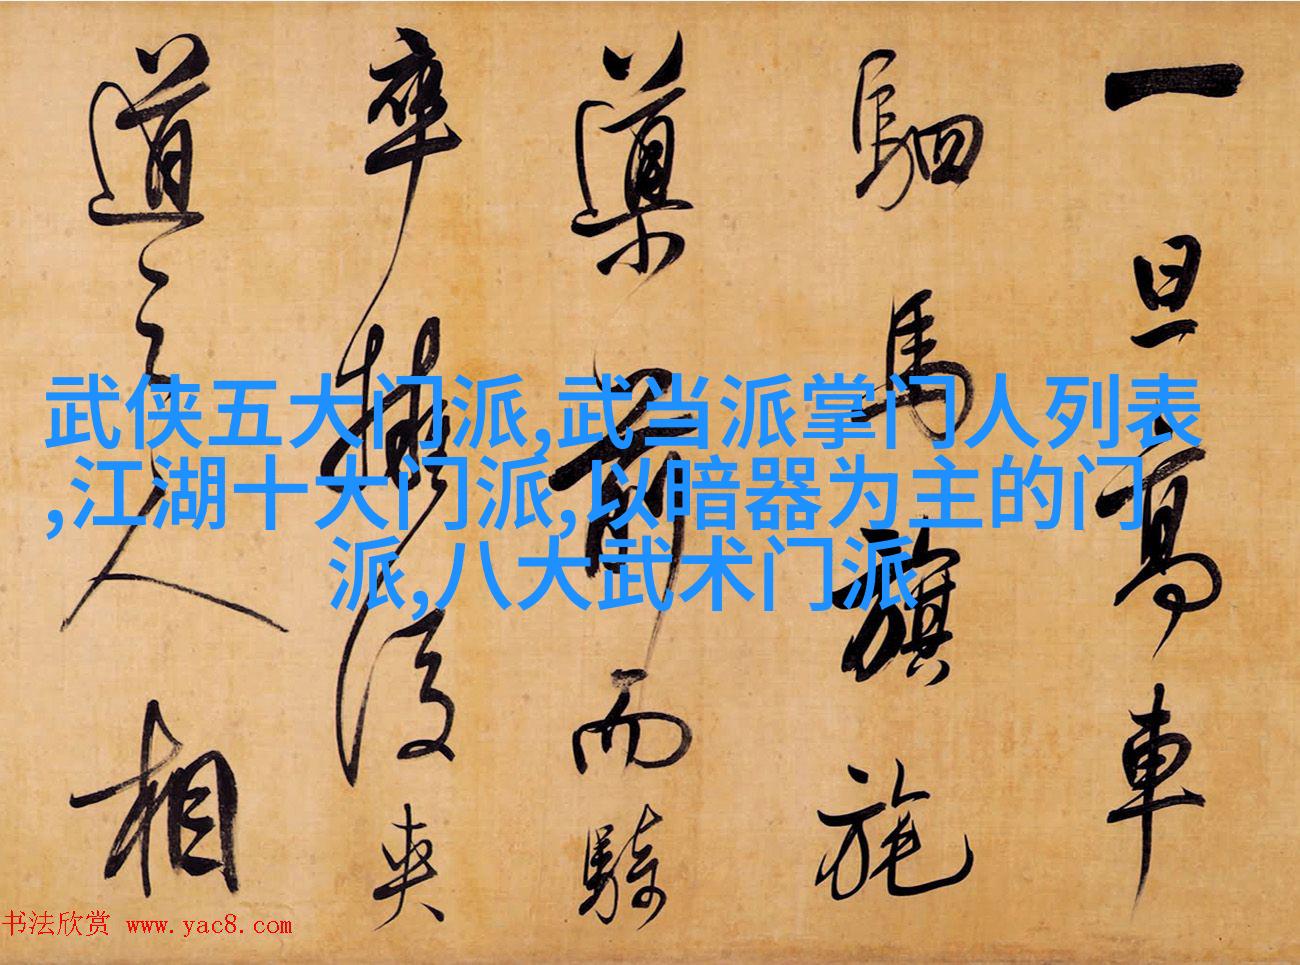 一旦高車
駟馬旗旄
導前而騎
卒擁後夾
道之人相
武侠五大门派,武当派掌门人列表
,江湖十大门派,以暗器为主的门
派,八大武术门派
书法欣赏 www.yac8.com